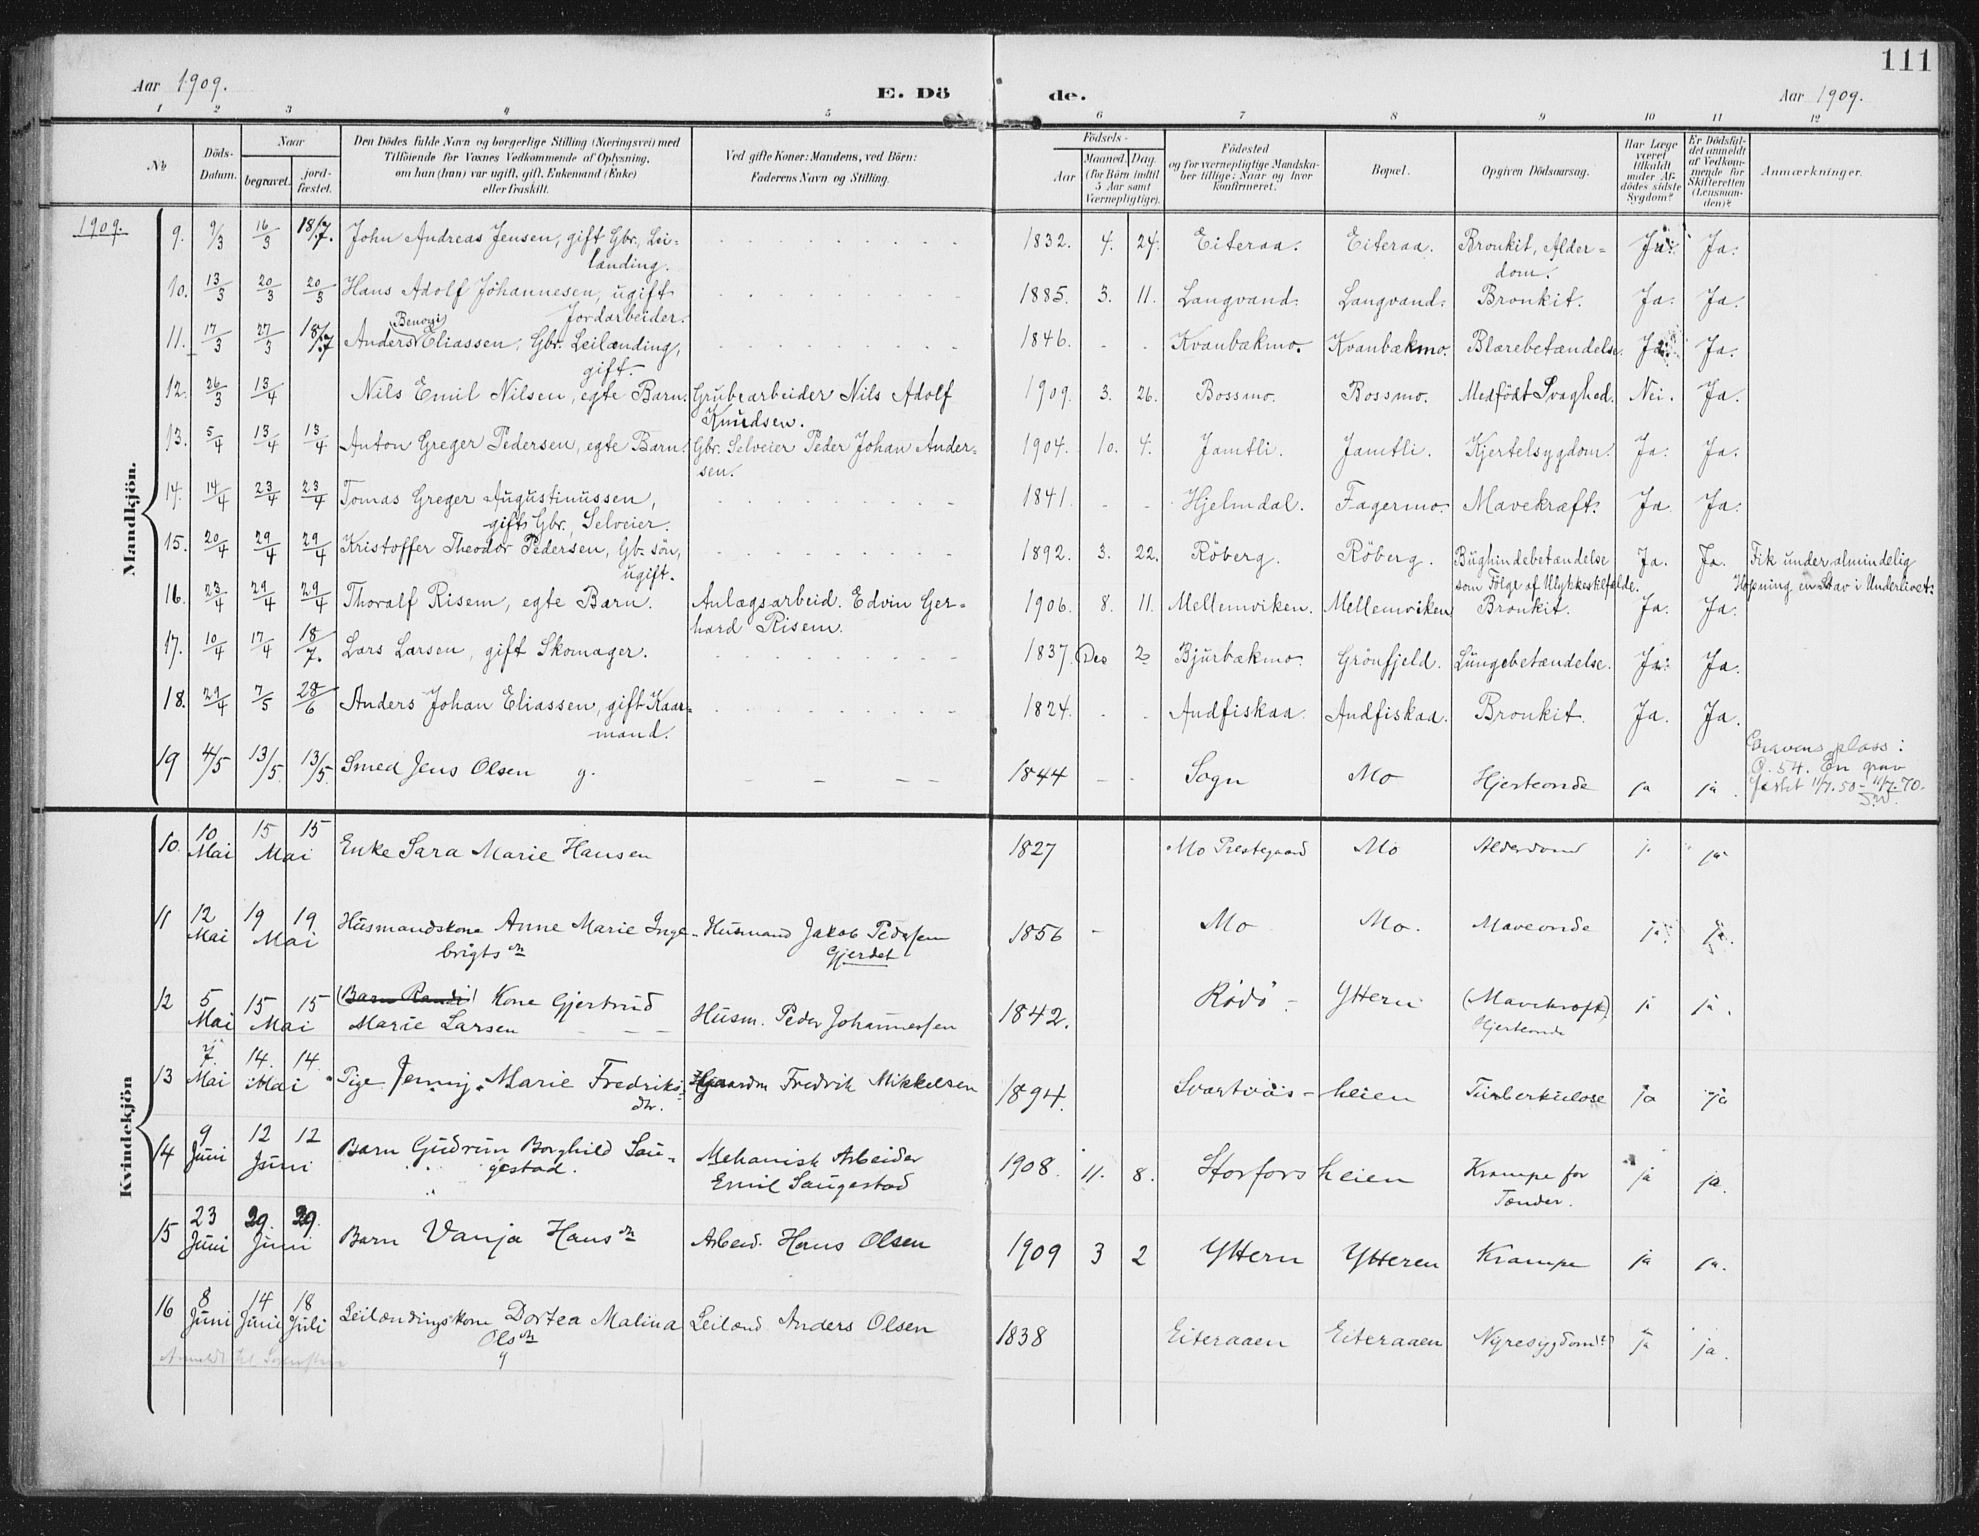 111
Aar 1909. E. Dö de. Aar 1909.
1 2 3 4 5 6 7 8 9 10 11 12
No Döds-Datum. Naar begravet. jordfæstet. Den Dödes fulde Navn og borgerlige Stilling (Næringsvei) med Tilföiende for Voxnes Vedkommende af Oplysning, om han (hun) var ugift, gift, Enkemand (Enke) eller fraskilt. Ved gifte Koner: Mandens, ved Börn: Faderens Navn og Stilling. Födsels- Aar Maaned. Dag. (for Börn indtil 5 Aar samt Værnepligtige). Födested og for værnepligtige Mandskaber tillige: Naar og hvor konfirmeret. Bopæl. Opgiven Dödsaarsag. Har Læge været tilkaldt under Afdödes sidste Sygdom? Er Dödsfaldet anmeldt af Vedkommende for Skifteretten (Lensmanden)? Anmærkninger.
1909.
Mandkjön.
9. 9/3 16/3 18/7. John Andreas Jensen, gift Gbr., Lei- 1832. 4. 24. Eiteraa. Eiteraa. Bronkit, Alder- Ja. Ja.
lænding. dom.
10. 13/3 20/3 20/3 Hans Adolf Johannesen, ugift 1885. 3. 11. Langvand. Langvand. Bronkit. Ja. Ja.
Jordarbeider.
Benoni
11. 17/3 27/3 18/7 Anders Eliassen, Gbr. Leilænding, 1846. - - Kvanbækmo. Kvanbækmo. Blærebetændelse. Ja. Ja.
gift.
12. 26/3 13/4 Nils Emil Nilsen, egte Barn. Grubearbeider Nils Adolf 1909. 3. 26. Bossmo. Bossmo. Medfödt Svaghed. Nei. Ja.
Knudsen.
13. 5/4 13/4 13/4 Anton Greger Pedersen, egte Barn. Gbr. Selveier Peder Johan Ander- 1904. 10. 4. Jamtli. Jamtli. Kjertelsygdom. Ja. Ja.
sen.
14. 14/4 23/4 23/4 Tomas Greger Augustinussen, 1841. - - Hjelmdal. Fagermo. Mavekræft. Ja Ja.
gift Gbr., Selveier.
15. 20/4 29/4 29/4 Kristoffer Theodor Pedersen, Gb. sön, 1892. 3. 22. Röberg. Röberg. Bughindebetændelse Ja. Ja. Fik under almindelig
ugift. som Fölge af Ulykkestilfælde. Hopning en Stav i Underlivet.
16. 23/4 29/4 29/4 Thoralf Risem, egte Barn. Anlægsarbeid. Edvin Ger- 1906. 8. 11. Mellemviken. Mellemviken Bronkit. Ja. Ja.
hard Risem.
17. 10/4 17/4 18/7. Lars Larsen, gift Skomager. 1837. Des 2 Bjurbækmo. Grönfjeld. Lungebetændelse. Ja. Ja.
18. 29/4 7/5 28/6 Anders Johan Eliassen, gift Kaar- 1824. - - Andfiskaa. Andfiskaa. Bronkit. Ja. Ja.
mand.
19 4/5 13/5. 13/5. Smed Jens Olsen g. 1844 - - Sogn Mo Hjerteonde ja ja. Gravens plass:
54. En grav
festet 11/7.50 - 11/7.70.
Kvindekjön
10. 10 Mai 15 15 Mai Enke Sara Marie Hansen 1827 Mo Prestegaard Mo Alderdom j. ja
11 12 Mai 19 19 Mai Husmandskone Anne Marie Inge- Husmand Jakob Pedersen 1856 - Mo Mo. Maveonde ja. ja.
brigts dr. Gjerdet
12 5 Mai 15 15 Mai (Barn Randi) Kone Gjertrud Husm. Peder Johannessen 1842. Rödö - Yttern (Mavekræft) ja ja.
Marie Larsen Hjerteonde
13 7 Mai 14. 14. Mai Pige Jenny Marie Fredriks- Gaardm Fredrik Mikkelsen 1894. Svartvas- heien Tuberkulose ja ja
dr.
14 9 Juni 12 12 Juni Barn Gudrun Borghild Sau- Mekanisk Arbeider 1908. 11. 8. Storfors heien Krampe for ja ja.
gestad. Emil Saugestad Tænder.
15 23 Juni 29. 29. Juni Barn Vanja Hans dr Arbeid. Hans Olsen 1909 3 2 Yttern Ytteren Krampe ja ja.
16 8 Juni 14 Juni 18 Juli Leilændingskone Dortea Malina Leilænd Anders Olsen 1838 Eiteraaen Eiteraaen Nyresygdom ja ja.
Ols dr
g